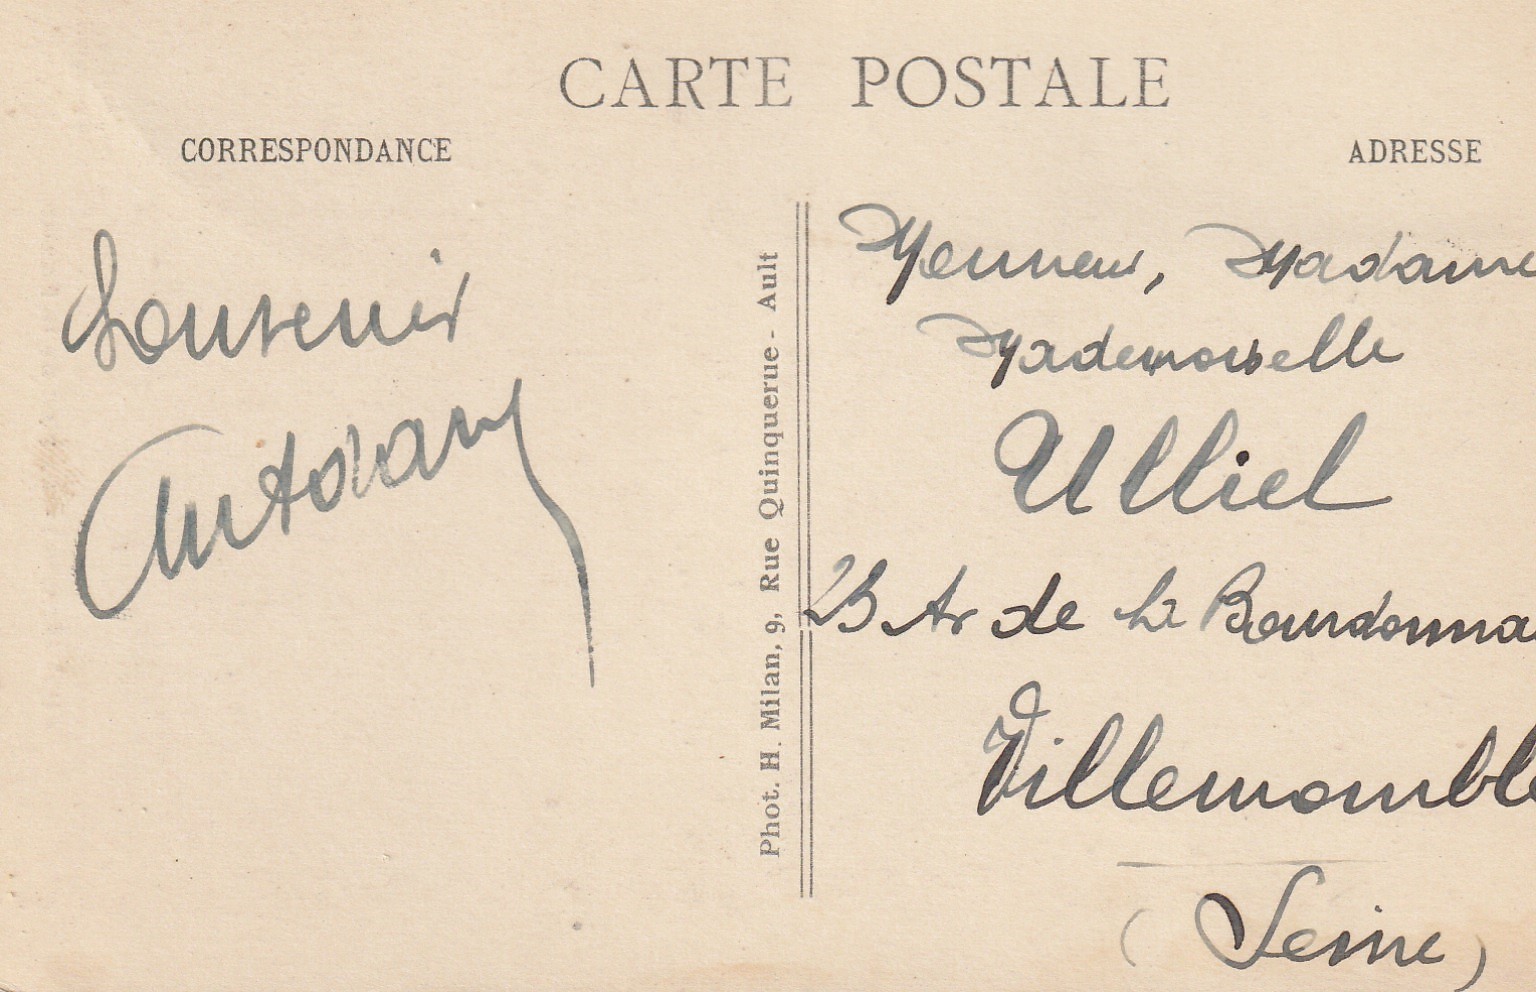 CARTE POSTALE
CORRESPONDANCE
ADRESSE
Souvenir
Phot. H. Milan, 9, Rue Quinquerue - Ault
Monsieur, Madame
Mademoiselle
Ulliel
23 Av de la Bourdonna
Villemomble
(Seine)